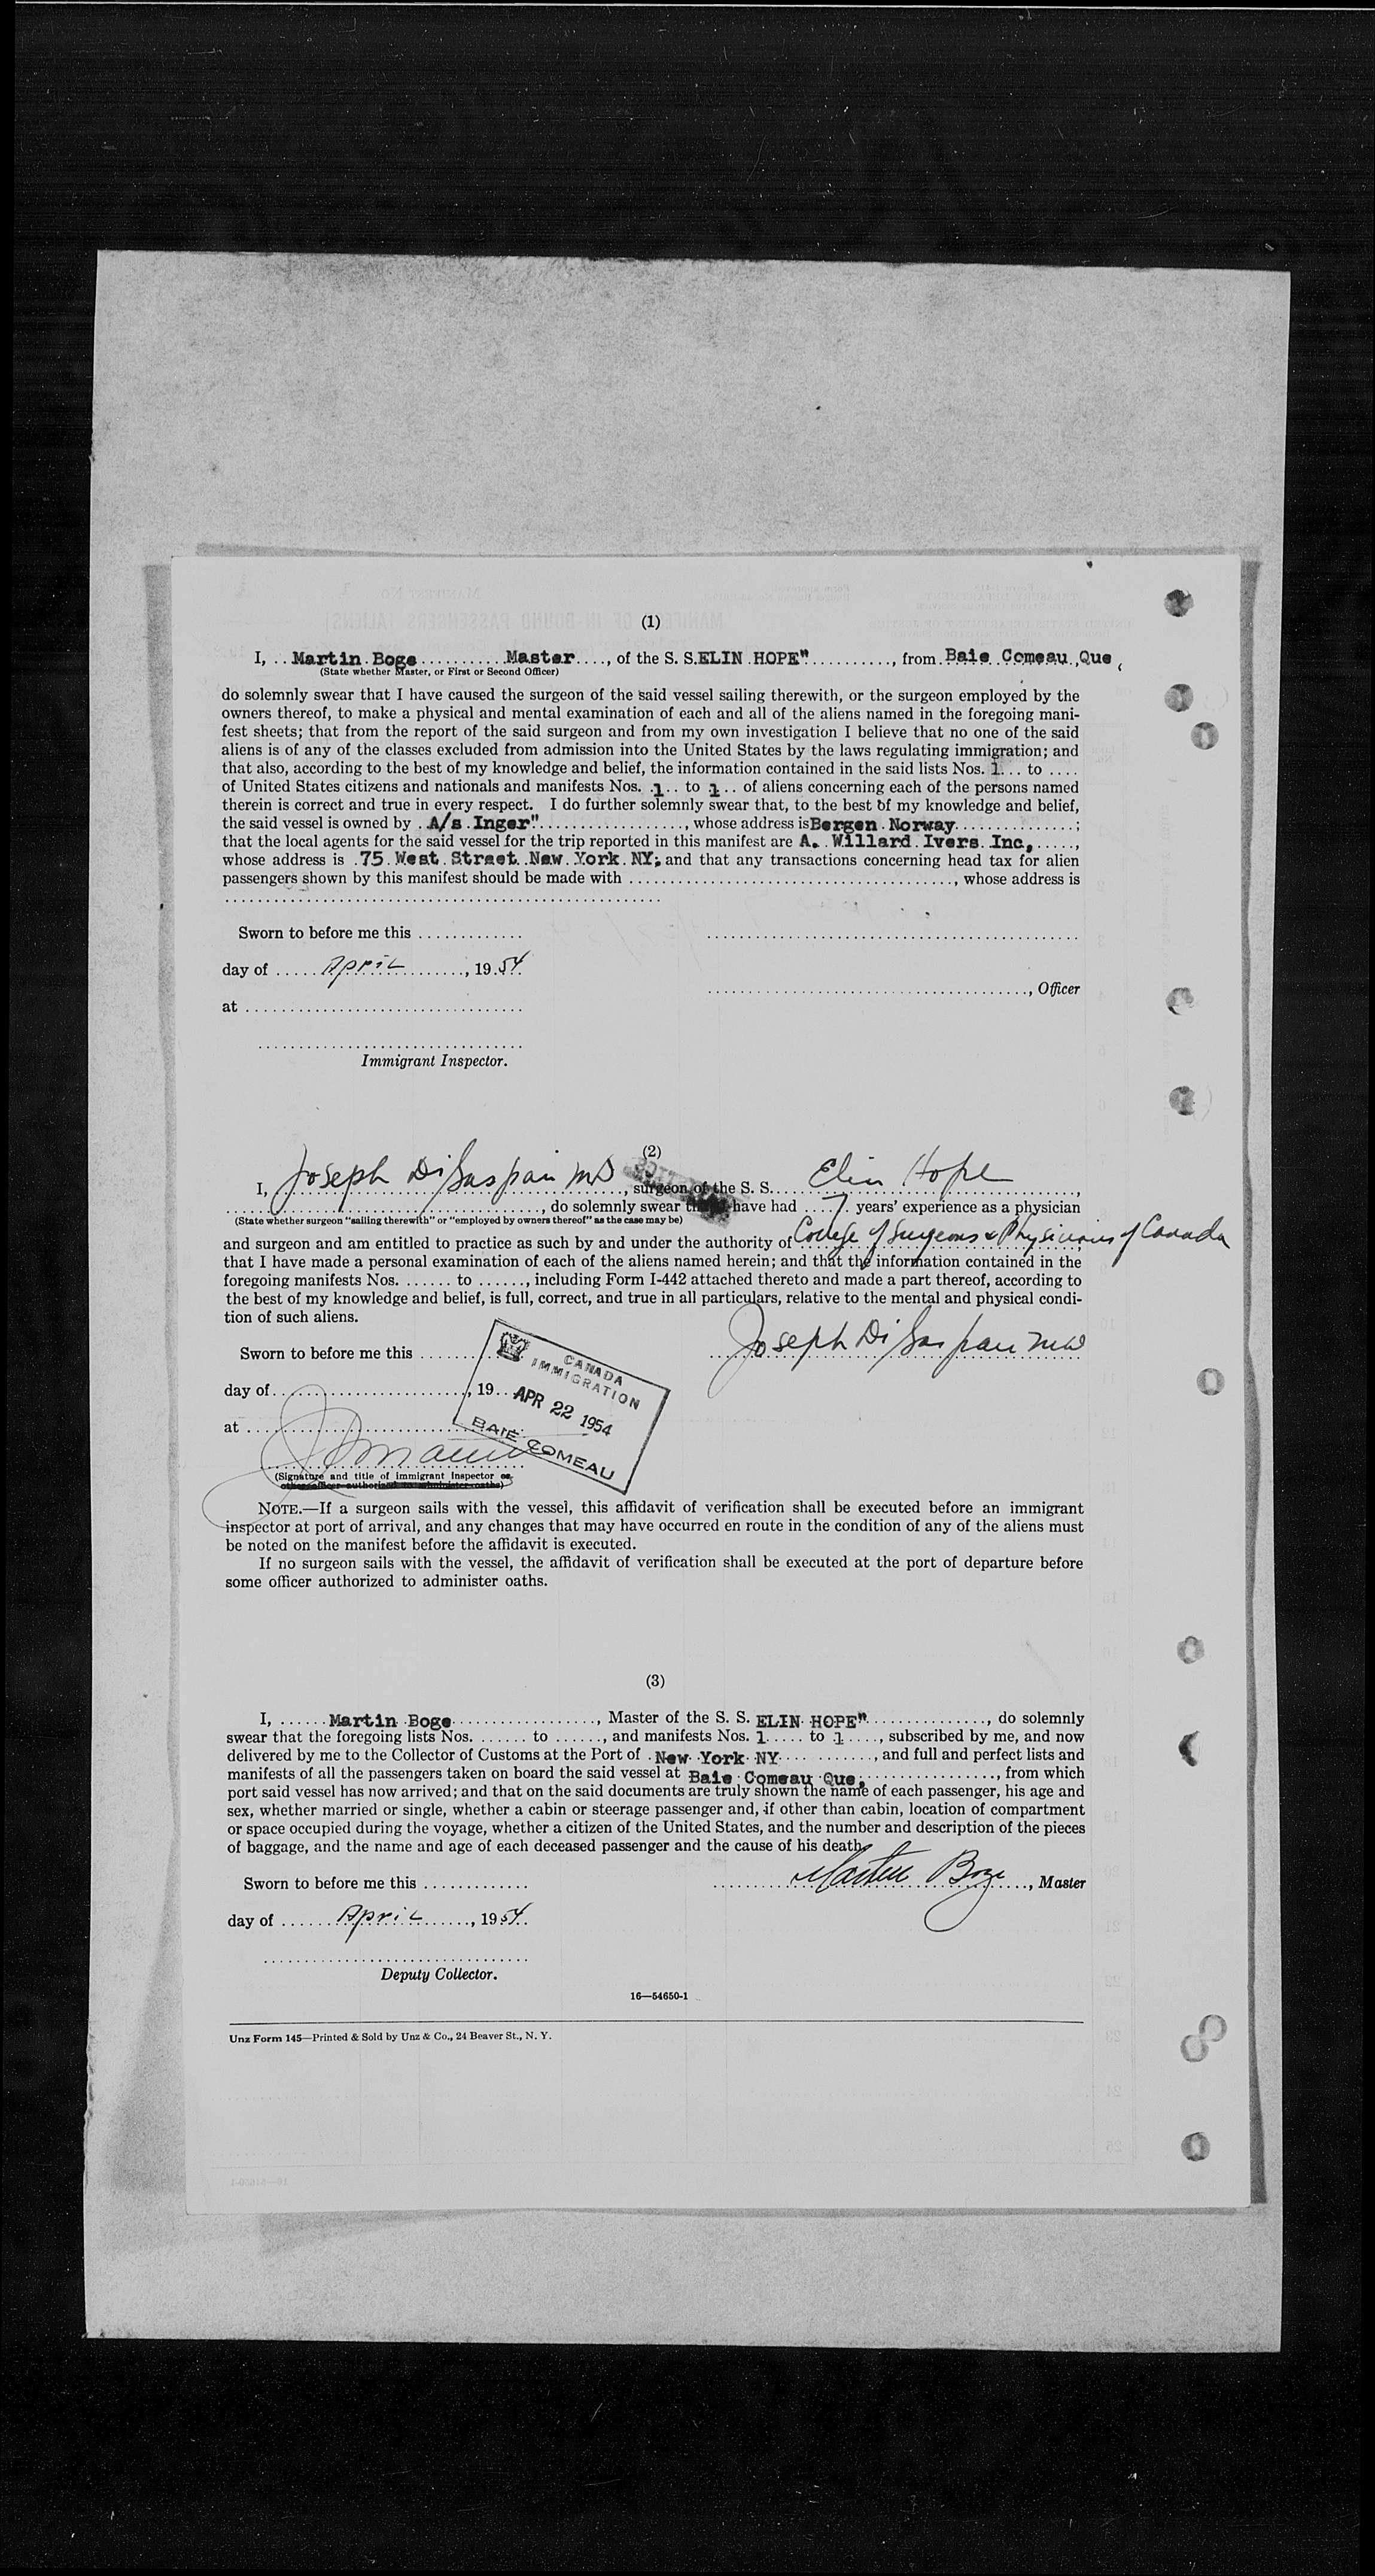 (1)
I, .. Martin Boge .......... Master ...., of the S. S. ELIN HOPE" .........., from Baie Comeau, Que,
(State whether Master, or First or Second Officer)
do solemnly swear that I have caused the surgeon of the said vessel sailing therewith, or the surgeon employed by the
owners thereof, to make a physical and mental examination of each and all of the aliens named in the foregoing mani-
fest sheets; that from the report of the said surgeon and from my own investigation I believe that no one of the said
aliens is of any of the classes excluded from admission into the United States by the laws regulating immigration; and
that also, according to the best of my knowledge and belief, the information contained in the said lists Nos. 1... to ....
of United States citizens and nationals and manifests Nos. .1.. to 1.. of aliens concerning each of the persons named
therein is correct and true in every respect. I do further solemnly swear that, to the best of my knowledge and belief,
the said vessel is owned by . A/s Inger" .................., whose address is Bergen Norway ...............;
that the local agents for the said vessel for the trip reported in this manifest are A. Willard Ivers Inc, .....,
whose address is .75 West Street New York NY; and that any transactions concerning head tax for alien
passengers shown by this manifest should be made with ........................................, whose address is
Sworn to before me this .............
day of ..... April .........., 19.54.
..................................., Officer
at ..................................
Immigrant Inspector.
(2)
I, Joseph Di Gaspari MD ..., surgeon of the S. S. Elin Hope ..........,
......................................, do solemnly swear have had .... 7. years' experience as a physician
(State whether surgeon "sailing therewith" or "employed by owners thereof" as the case may be)
and surgeon and am entitled to practice as such by and under the authority of College of Surgeons & Physicians of Canada
that I have made a personal examination of each of the aliens named herein; and that the information contained in the
foregoing manifests Nos. ...... to ......, including Form I-442 attached thereto and made a part thereof, according to
the best of my knowledge and belief, is full, correct, and true in all particulars, relative to the mental and physical condi-
tion of such aliens.
Joseph Di Gaspari MD
Sworn to before me this ........
day of ........................, 19..
CANADA
IMMIGRATION
APR 22 1954
BAIE COMEAU
at ..........................
(Signature and title of immigrant inspector or
other officer authorized to administer oaths)
NOTE.—If a surgeon sails with the vessel, this affidavit of verification shall be executed before an immigrant
inspector at port of arrival, and any changes that may have occurred en route in the condition of any of the aliens must
be noted on the manifest before the affidavit is executed.
If no surgeon sails with the vessel, the affidavit of verification shall be executed at the port of departure before
some officer authorized to administer oaths.
(3)
I, ...... Martin Boge .................., Master of the S. S. ELIN HOPE" ..............., do solemnly
swear that the foregoing lists Nos. ....... to ......, and manifests Nos. 1..... to 1...., subscribed by me, and now
delivered by me to the Collector of Customs at the Port of . New York NY ............, and full and perfect lists and
manifests of all the passengers taken on board the said vessel at Baie Comeau Que, ................, from which
port said vessel has now arrived; and that on the said documents are truly shown the name of each passenger, his age and
sex, whether married or single, whether a cabin or steerage passenger and, if other than cabin, location of compartment
or space occupied during the voyage, whether a citizen of the United States, and the number and description of the pieces
of baggage, and the name and age of each deceased passenger and the cause of his death.
Sworn to before me this .............
Martin Boge ..., Master
day of ...... April ......, 19 54.
Deputy Collector.
16—54650-1
Unz Form 145—Printed & Sold by Unz & Co., 24 Beaver St., N. Y.